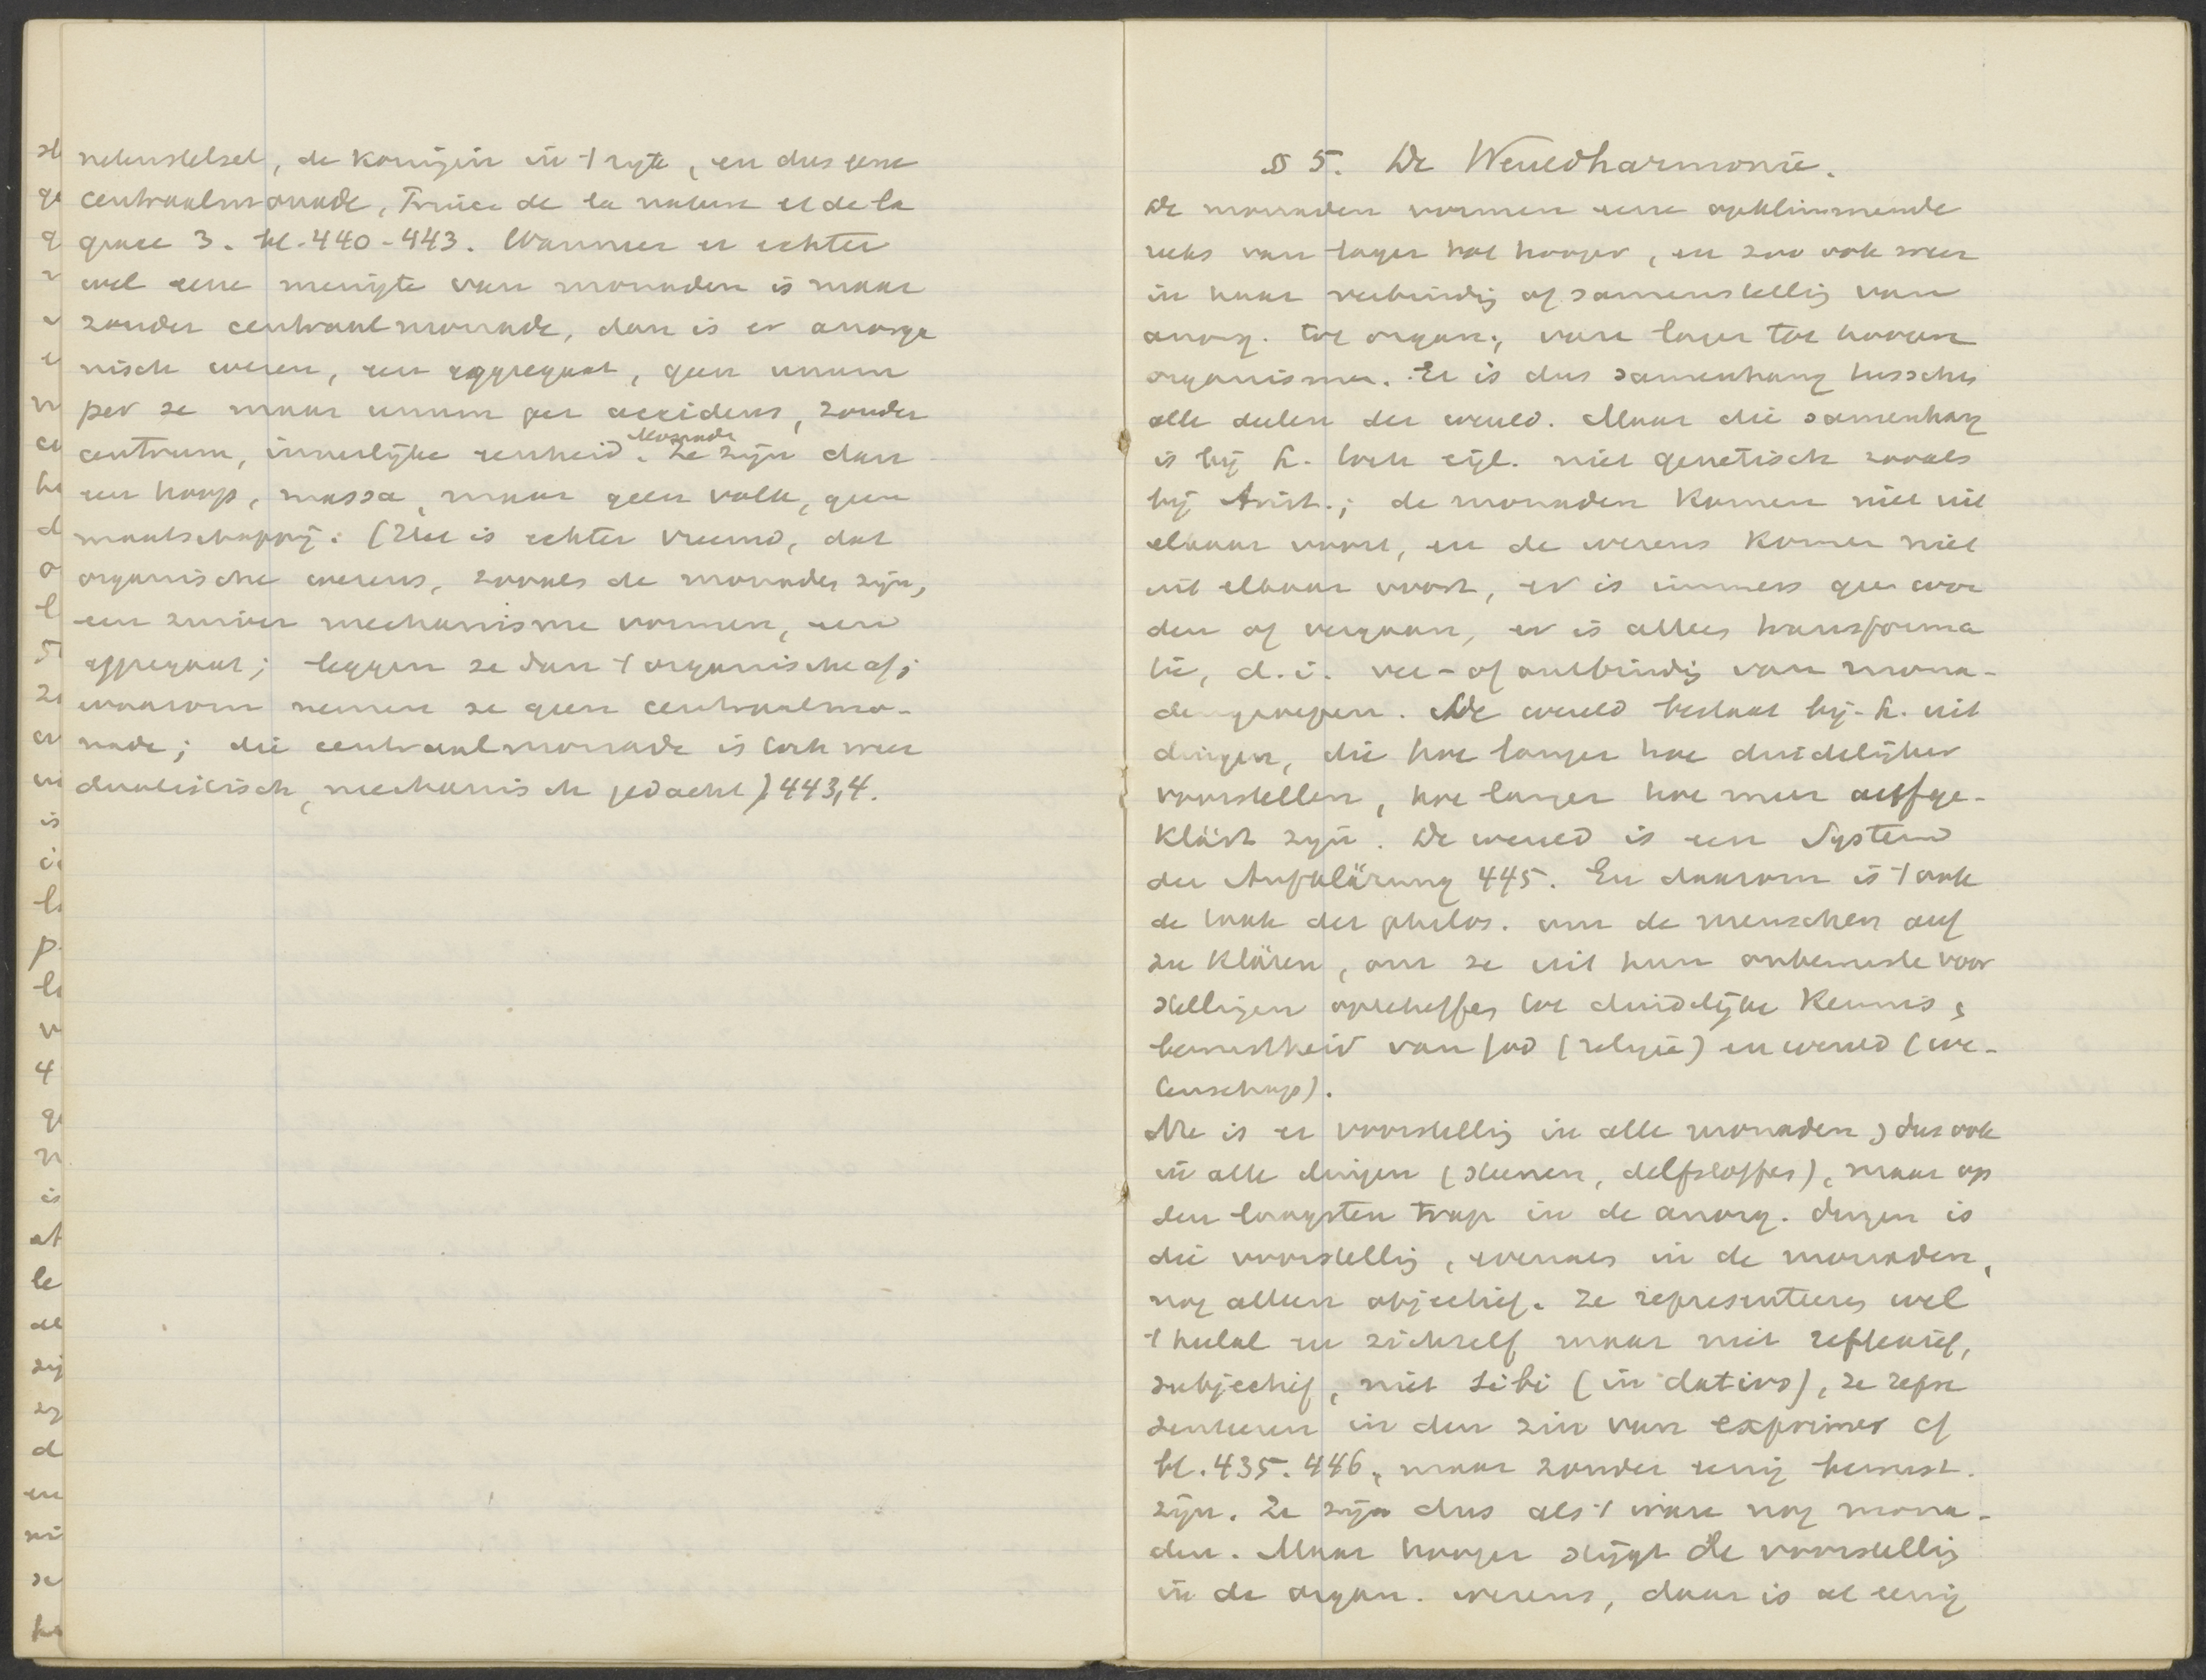 netenstelsel, de koningin in 't rijk, en dus eene
centraalmonade, Princ. de la nature et de la
grace 3. bl. 440-443. Wanneer er echter
wel eene menigte van monaden is maar
zonder centraalmonade, dan is er anorga
nisch wezen, een aggregaat, geen unum
per se maar unum per accidens, zonder
centrum, innerlijke eenheid. Ze zijn dan
een hoop, massa, maar geen volk, geen
maatschappij. (Het is echter vreemd, dat
organische wezens, zooals de monaden zijn,
een zuiver mechanisme vormen, een
aggregaat; leggen ze dan 't organische af;
waarom nemen ze geen centraalmo-
nade; die centraalmonade is toch weer
dualistisch, mechanisch gedacht). 443,4.
§ 5. De Wereldharmonie.
De monaden vormen eene opklimmende
reeks van lager tot hooger, en zoo ook weer
in haar verbindig of samenstellig van
anorg. tot organ., van lager tot hoogere
organismen. Er is dus samenhang tusschen
alle deelen der wereld. Maar die samenhang
is bij L. toch eigl. niet genetisch zooals
bij Arist.; de monaden komen niet uit
elkaar voort, en de wezens komen niet
uit elkaar voort, er is immers geen wor
den of vergaan, er is alleen transforma
tie, d.i. ver- of ontbindig van mona-
dengroepen. De wereld bestaat bij L. uit
dingen, die hoe langer hoe duidelijker
voorstellen, hoe langer hoe meer aufge-
klärt zijn. De wereld is een System
der Aufklärung 445. En daarom is 't ook
de taak der philos. om de menschen auf
zu klären, om ze uit hun onbewuste voor
stellingen opteheffen tot duidelijke kennis,
bewustheid van God (religie) en wereld (we-
tenschap).
Nu is er voorstellig in alle monaden, dus ook
in alle dingen (steenen, delfstoffen), maar op
den laagsten trap in de anorg. dingen is
die voorstellig, evenals in de monaden,
nog alleen objectief. Ze representeeren wel
't heelal en zichzelf maar niet reflexief,
subjectief, niet sibi (in dativo), ze repre
senteeren in den zin van exprimer cf
bl. 435. 446, maar zonder eenig bewust-
zijn. Ze zijn dus als 't ware nog mona-
den. Maar hooger stijgt de voorstellig
in de organ. wezens, daar is al eenig